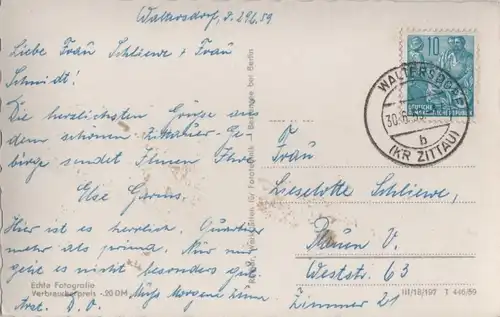 Waltersdorf, d. 29.6.59
Liebe Frau Schliewe + Frau
Schmidt!
Die herzlichsten Grüsse aus
dem schönen Zittauer-Ge-
birge sendet Ihnen Ihre
Else
Hier ist es herrlich. Quartier
mehr als prima. Nur mir
geht es nicht besonders gut
Muss Morgen zum
Arzt. D. O.
Echte Fotografie
Verbraucherpreis -.20 DM
bei Berlin
10
DEUTSCHE
DEMOKRATISCHE REPUBLIK
WALTERSDORF
30.6.59
b
(KR ZITTAU)
Frau
Lieselotte Schliewe,
Plauen V.
Weststr. 63
Zimmer 21
III/18/197 T 446/59